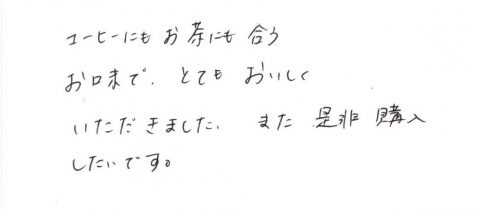 コーヒーにもお茶にも合う
お味で、とてもおいしく
いただきました。また是非購入
したいです。